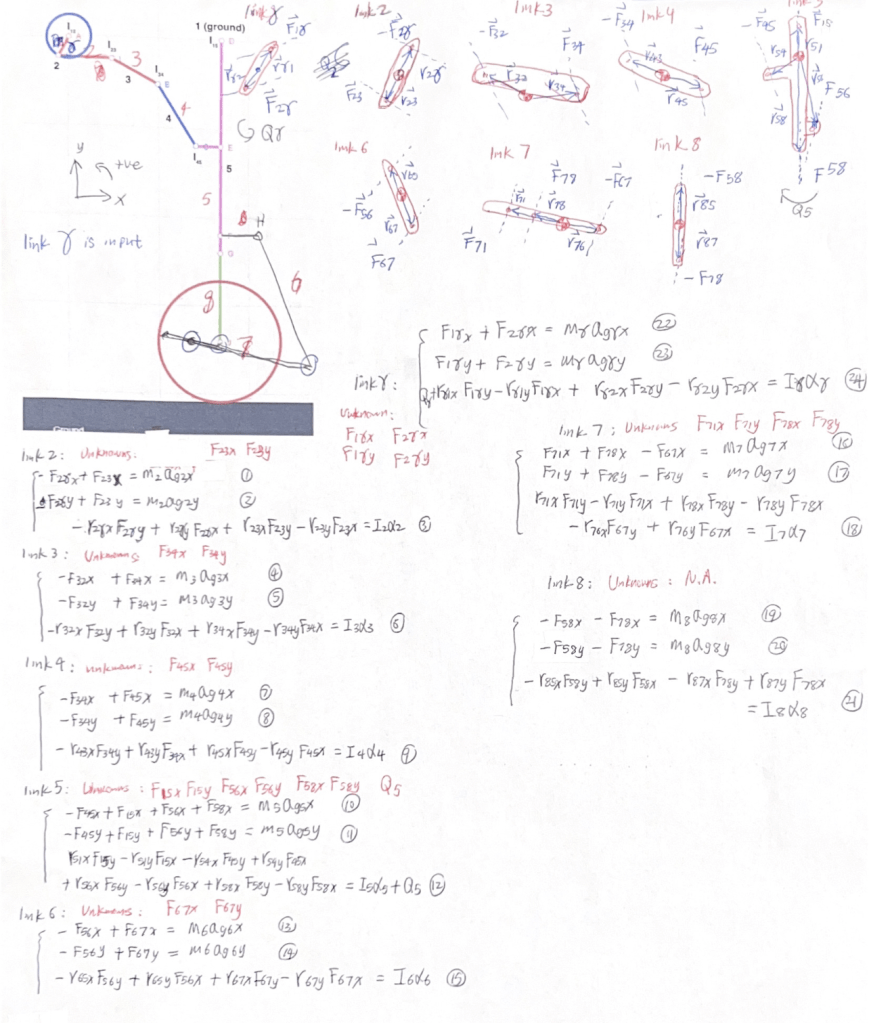 1 (ground)
2
3
3
4
4
5
5
6
7
8
H
y
+ve
x
link γ is input
link γ
F1γ
rγ2
rγ1
F2γ
Qγ
link 2
-F2γ
r2γ
F23
r23
link 3
-F32
F34
r32
r34
link 4
-F34
F45
r43
r45
-F45
F15
r54
r51
F56
r58
F58
Q5
link 6
r65
-F56
r67
F67
link 7
F78
-F67
r71
r78
F71
r76
link 8
-F58
r85
r87
-F78
link γ:
F1γx + F2γx = mγ agγx (22)
F1γy + F2γy = mγ agγy (23)
Qγ + rγ1x F1γy - rγ1y F1γx + rγ2x F2γy - rγ2y F2γx = Iγ αγ (24)
Unknown:
F1γx F2γx
F1γy F2γy
link 2: Unknowns: F23x F23y
- F2γx + F23x = m2 ag2x ①
- F2γy + F23y = m2 ag2y ②
- r2γx F2γy + r2γy F2γx + r23x F23y - r23y F23x = I2α2 ③
link 3: Unknowns: F34x F34y
-F32x + F34x = m3 ag3x ④
-F32y + F34y = m3 ag3y ⑤
-r32x F32y + r32y F32x + r34x F34y - r34y F34x = I3α3 ⑥
link 4: unknowns: F45x F45y
-F34x + F45x = m4 ag4x ⑦
-F34y + F45y = m4 ag4y ⑧
- r43x F34y + r43y F34x + r45x F45y - r45y F45x = I4α4 ⑨
link 5: Unknowns: F15x F15y F56x F56y F58x F58y Q5
- F45x + F15x + F56x + F58x = m5 ag5x ⑩
- F45y + F15y + F56y + F58y = m5 ag5y ⑪
r51x F15y - r51y F15x - r54x F45y + r54y F45x
+ r56x F56y - r56y F56x + r58x F58y - r58y F58x = I5α5 + Q5 ⑫
link 6: Unknowns: F67x F67y
- F56x + F67x = m6 ag6x ⑬
- F56y + F67y = m6 ag6y ⑭
- r65x F56y + r65y F56x + r67x F67y - r67y F67x = I6α6 ⑮
link 7: Unknowns F71x F71y F78x F78y
F71x + F78x - F67x = m7 ag7x ⑯
F71y + F78y - F67y = m7 ag7y ⑰
r71x F71y - r71y F71x + r78x F78y - r78y F78x
- r76x F67y + r76y F67x = I7α7 ⑱
link 8: Unknowns: N.A.
- F58x - F78x = m8 ag8x ⑲
- F58y - F78y = m8 ag8y ⑳
- r85x F58y + r85y F58x - r87x F78y + r87y F78x
= I8α8 (21)